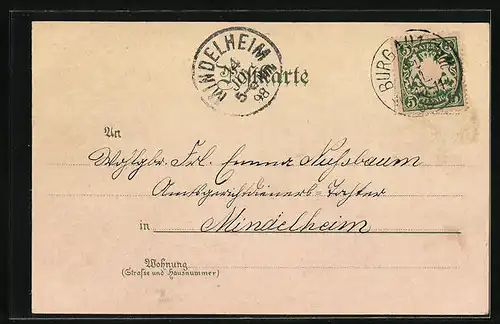 MINDELHEIM
5-6 NM
98
Postkarte
BURG
BAYERN
5 5
PFENNIG
An
Wohlgb. Frl. Emma Nußbaum
Amtsgerichtdieners-Tochter
in Mindelheim
Wohnung
(Strasse und Hausnummer)